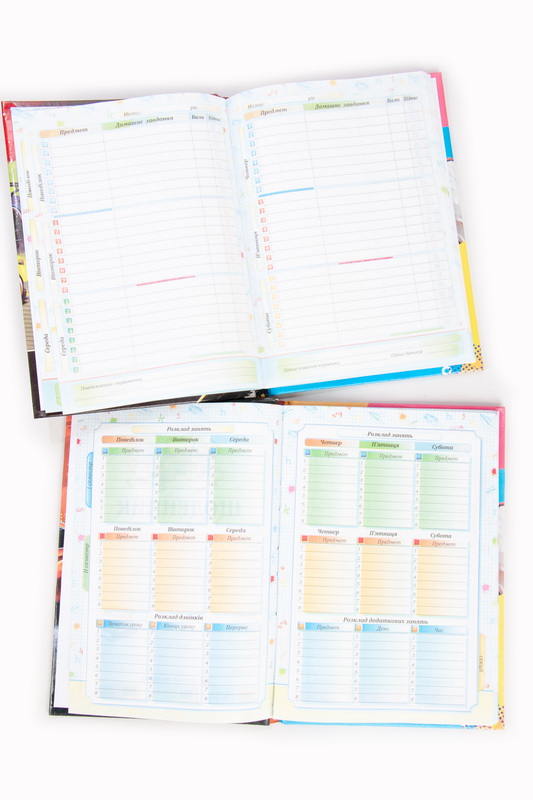 Місяць рік
Предмет Домашнє завдання Бали Підпис
Понеділок
Понеділок
Вівторок
Вівторок
Середа
Середа
Місяць рік
Предмет Домашнє завдання Бали Підпис
Четвер
П'ятниця
Субота
Підпис класного керівника
Розклад занять
Понеділок Вівторок Середа
Предмет Предмет Предмет
I семестр
Понеділок Вівторок Середа
Предмет Предмет Предмет
II семестр
Розклад дзвінків
Початок уроку Кінець уроку Перерва
Розклад занять
Четвер П'ятниця Субота
Предмет Предмет Предмет
Четвер П'ятниця Субота
Предмет Предмет Предмет
Розклад додаткових занять
Предмет День Час